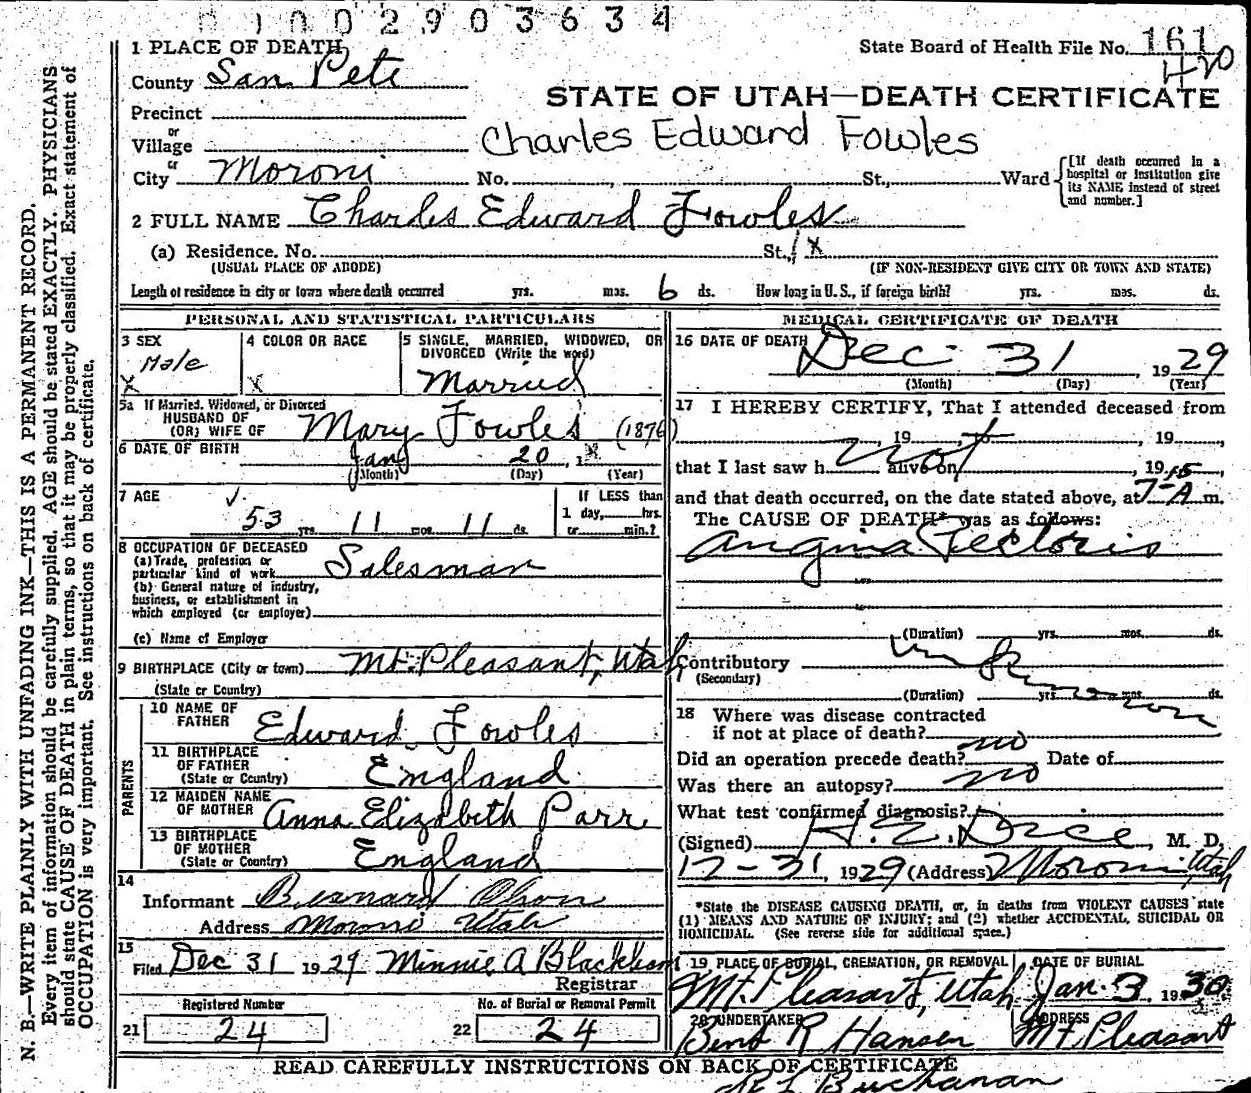 0 1 0 0 2 9 0 3 6 3 4
State Board of Health File No. 161
420
STATE OF UTAH—DEATH CERTIFICATE
Charles Edward Fowles
1 PLACE OF DEATH
County San Pete
Precinct
or
Village
or
City Moroni No. St., Ward
[If death occurred in a hospital or institution give its NAME instead of street and number.]
2 FULL NAME Charles Edward Fowles
(a) Residence. No. St., X
(USUAL PLACE OF ABODE) (IF NON-RESIDENT GIVE CITY OR TOWN AND STATE)
Length of residence in city or town where death occurred yrs. mos. 6 ds. How long in U. S., if foreign birth? yrs. mos. ds.
PERSONAL AND STATISTICAL PARTICULARS
3 SEX Male X
4 COLOR OR RACE X
5 SINGLE, MARRIED, WIDOWED, OR DIVORCED (Write the word)
Married
5a If Married, Widowed, or Divorced
HUSBAND OF
(OR) WIFE OF Mary Fowles (1876)
6 DATE OF BIRTH Jan 20, 1 X
(Month) (Day) (Year)
7 AGE 53 yrs. 11 mos. 11 ds.
If LESS than
1 day, hrs.
or min.?
8 OCCUPATION OF DECEASED
(a) Trade, profession or
particular kind of work Salesman
(b) General nature of industry,
business, or establishment in
which employed (or employer)
(c) Name of Employer
9 BIRTHPLACE (City or town) Mt. Pleasant, Utah
(State or Country)
PARENTS
10 NAME OF
FATHER Edward Fowles
11 BIRTHPLACE
OF FATHER England
(State or Country)
12 MAIDEN NAME
OF MOTHER Anna Elizabeth Parr
13 BIRTHPLACE
OF MOTHER England
(State or Country)
14
Informant Bernard Olson
Address Moroni Utah
15
Filed Dec 31 1929 Minnie A Blackham
Registrar
Registered Number
21 24
No. of Burial or Removal Permit
22 24
MEDICAL CERTIFICATE OF DEATH
16 DATE OF DEATH Dec 31 1929
(Month) (Day) (Year)
17 I HEREBY CERTIFY, That I attended deceased from
, 19 , to , 19 ,
that I last saw h not alive on , 1915,
and that death occurred, on the date stated above, at 7-A m.
The CAUSE OF DEATH* was as follows:
Angina Pectoris
(Duration) yrs. mos. ds.
Contributory
(Secondary)
(Duration) yrs. mos. ds.
18 Where was disease contracted
if not at place of death?
Did an operation precede death? no Date of
Was there an autopsy? no
What test confirmed diagnosis?
(Signed) H. E. Dice, M. D.
12-31, 1929 (Address) Moroni, Utah
*State the DISEASE CAUSING DEATH, or, in deaths from VIOLENT CAUSES state
(1) MEANS AND NATURE OF INJURY; and (2) whether ACCIDENTAL, SUICIDAL OR
HOMICIDAL. (See reverse side for additional space.)
19 PLACE OF BURIAL, CREMATION, OR REMOVAL DATE OF BURIAL
Mt. Pleasant, Utah Jan. 3, 1930
20 UNDERTAKER ADDRESS
Bent R Hansen Mt Pleasant
READ CAREFULLY INSTRUCTIONS ON BACK OF CERTIFICATE
Buchanan
N. B.—WRITE PLAINLY WITH UNFADING INK—THIS IS A PERMANENT RECORD.
Every item of information should be carefully supplied. AGE should be stated EXACTLY. PHYSICIANS
should state CAUSE OF DEATH in plain terms, so that it may be properly classified. Exact statement of
OCCUPATION is very important. See instructions on back of certificate.